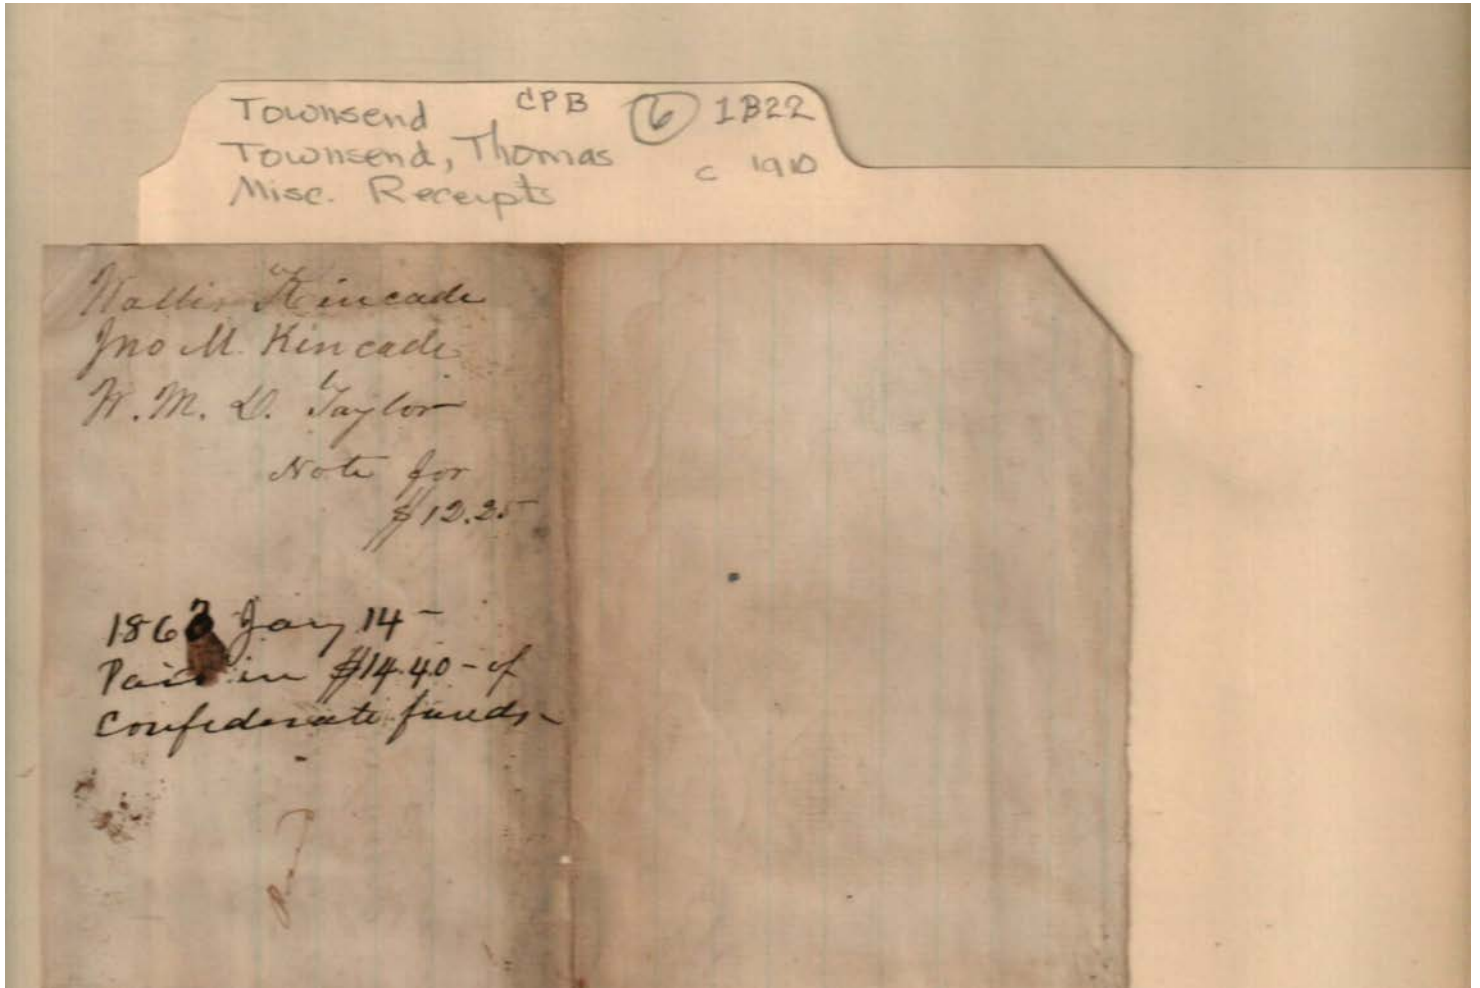 Townsend CPB 6 1B22
Townsend, Thomas c 1910
Misc. Receipts
Kincade
Jno M. Kincade
W. M. D. Taylor
Note for
$12.25
1863 Jany 14 -
Paid in $14.40 - of
Confederate funds -